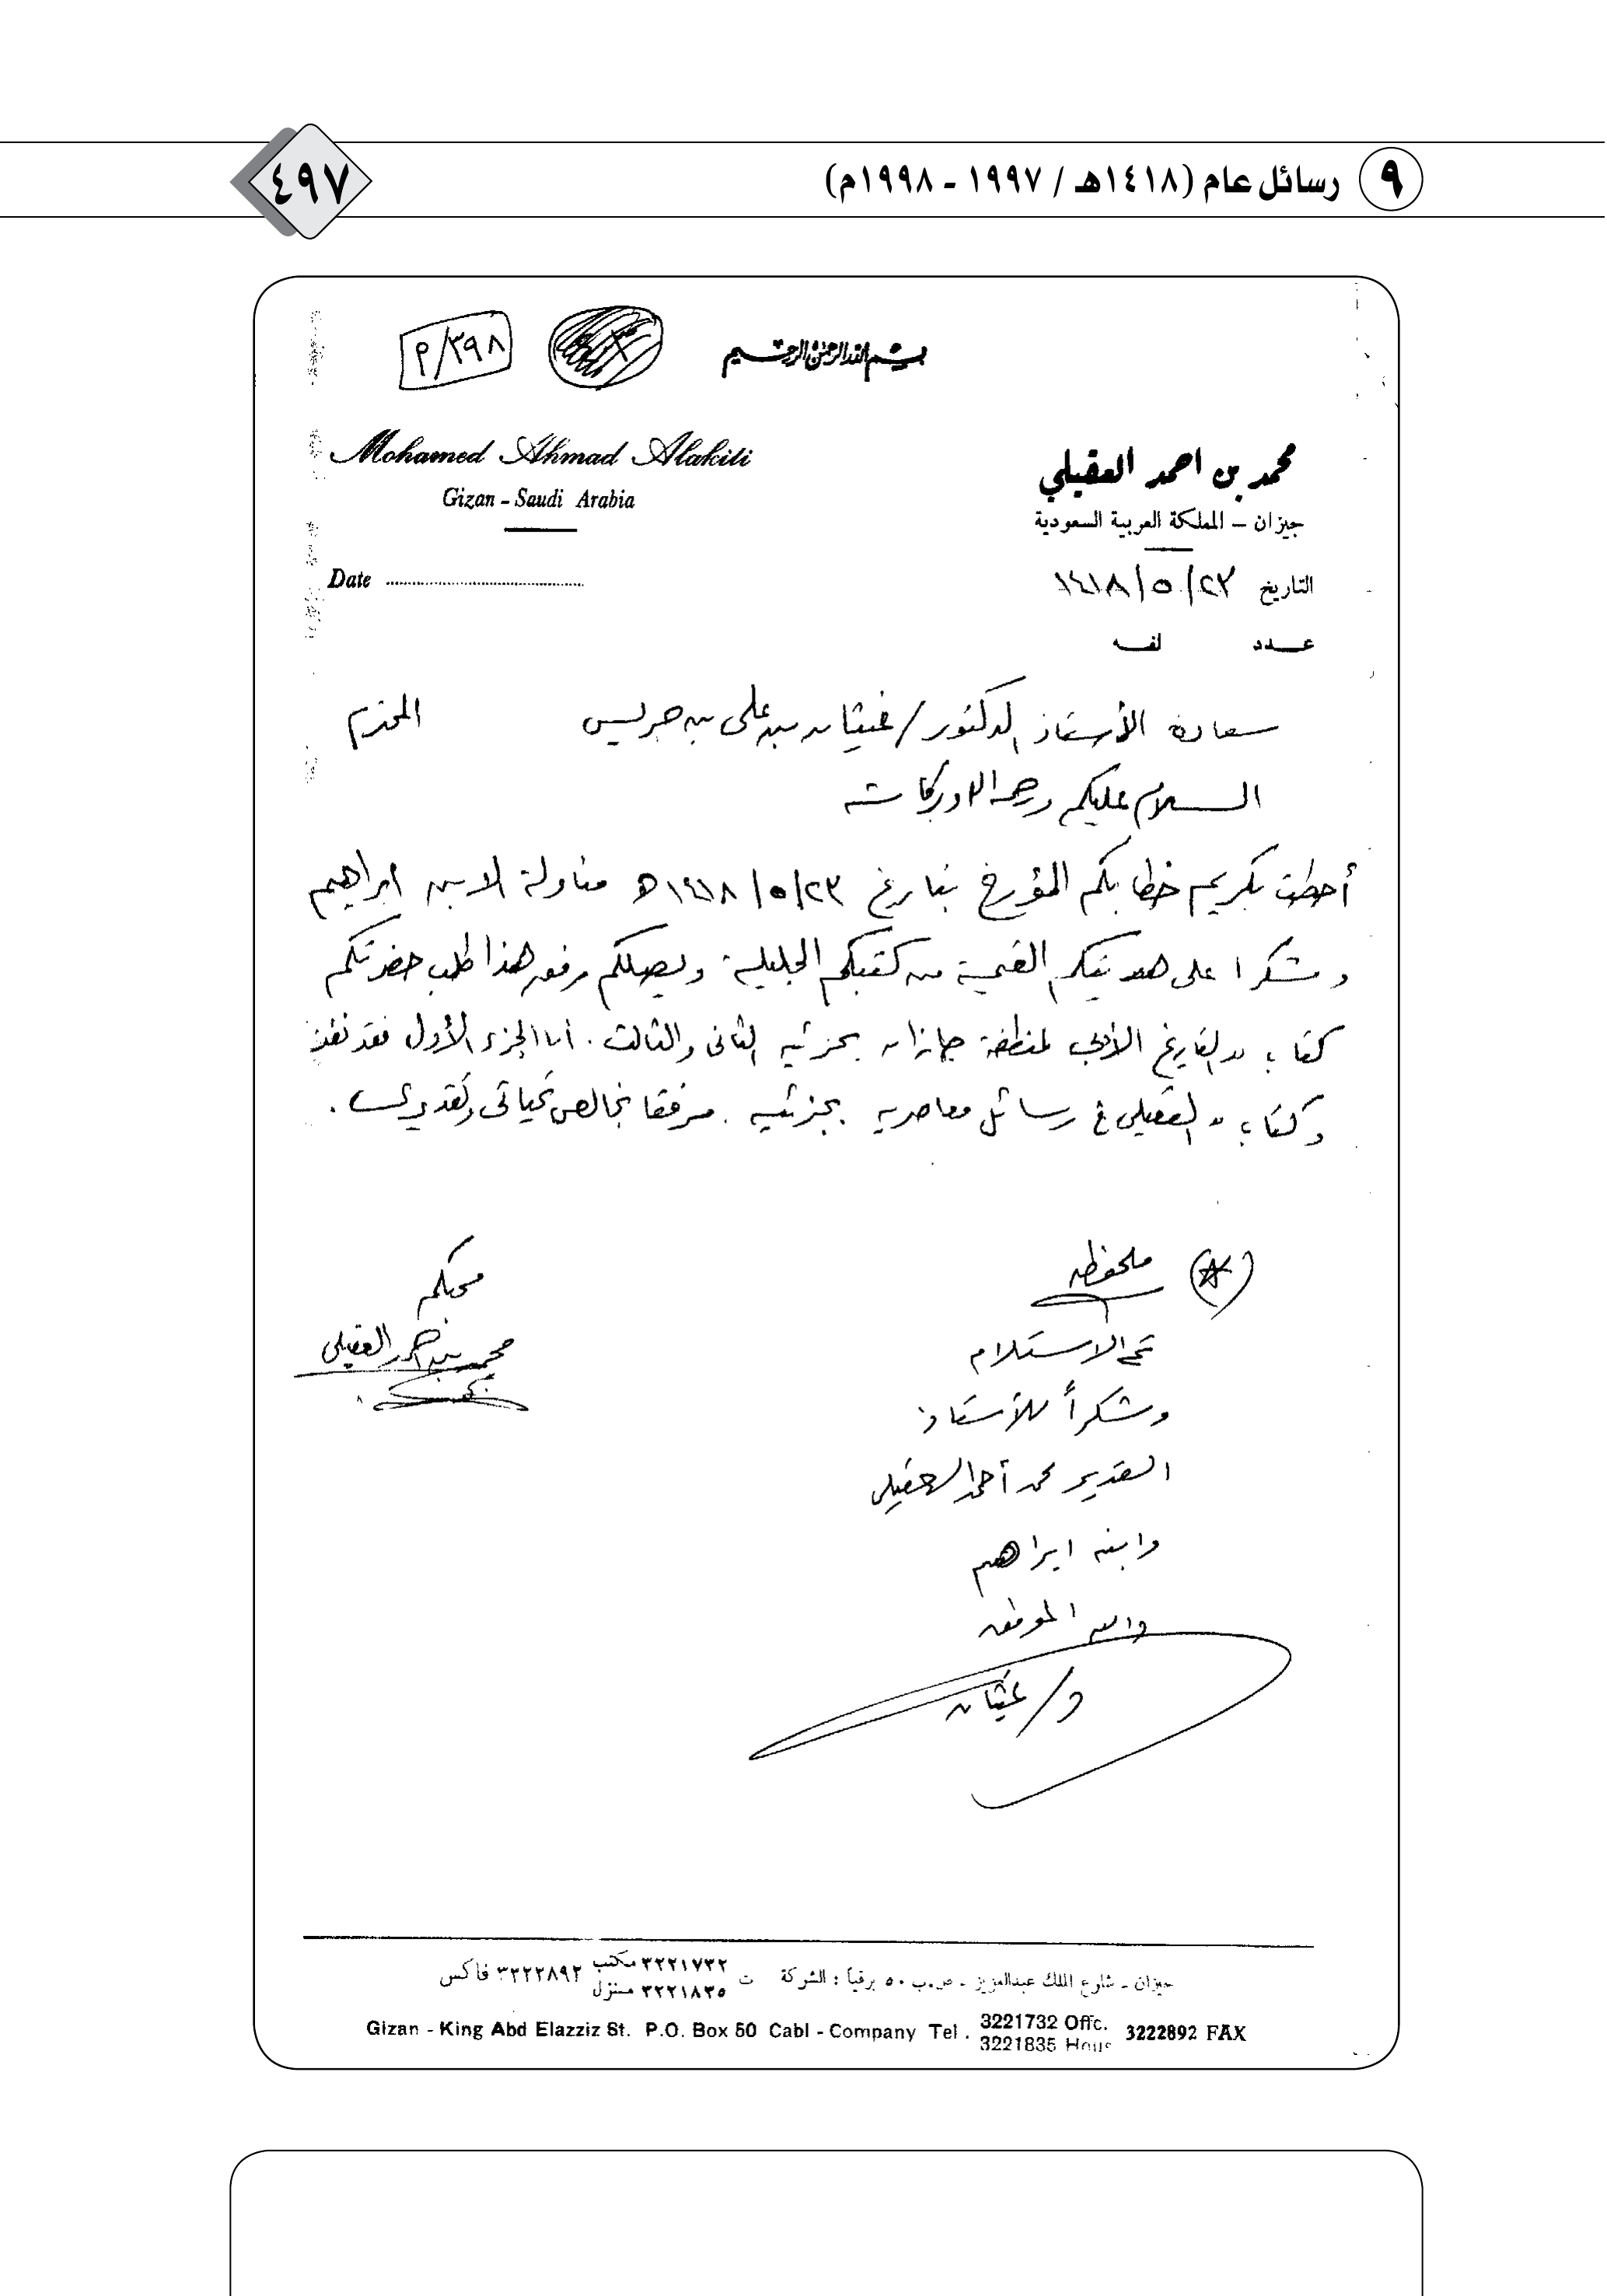 ٩ رسائل عام (١٤١٨هـ / ١٩٩٧ ـ ١٩٩٨م)
٤٩٧
بسم الله الرحمن الرحيم
٣٩٨/م
محمد بن احمد العقيلي
Mohamed Ahmad Alakili
جيزان – المملكة العربية السعودية
Gizan – Saudi Arabia
التاريخ ٢٣/٥/١٤١٨
Date
عدد لفه
سعادة الأستاذ الدكتور/غيثان بن علي بن جريس المحترم
السلام عليكم ورحمة الله وبركاته
أحطت بكريم خطابكم المؤرخ بتاريخ ٢٣/٥/١٤١٨ه مناولة الابن ابراهيم
وشكرا على هديتكم القيمة من كتبكم الجليلة ويصلكم مرفق هذا طلب حضرتكم
كتاب " التاريخ الأدبي لمنطقة جازان بجزئيه الثاني والثالث . أما الجزء الأول فقد نفذ
وكتاب " العقيلي في رسائل معاصريه بجزئيه . مرفقا بخالص تحياتي وتقديري .
محبكم
محمد بن احمد العقيلي
ملحوظه
تم الاستلام
وشكراً للأستاذ
القدير محمد أحمد العقيلي
وابنه ابراهيم
والله الموفق
د/غيثان
جيزان ـ شارع الملك عبدالعزيز ـ ص.ب ٥٠ برقيا : الشركة ت ٣٢٢١٧٣٢ مكتب ٣٢٢٢٨٩٢ فاكس
٣٢٢١٨٣٥ منزل
Gizan - King Abd Elazziz St. P.O. Box 50 Cabl - Company Tel. 3221732 Offc. 3222892 FAX
3221835 Hous